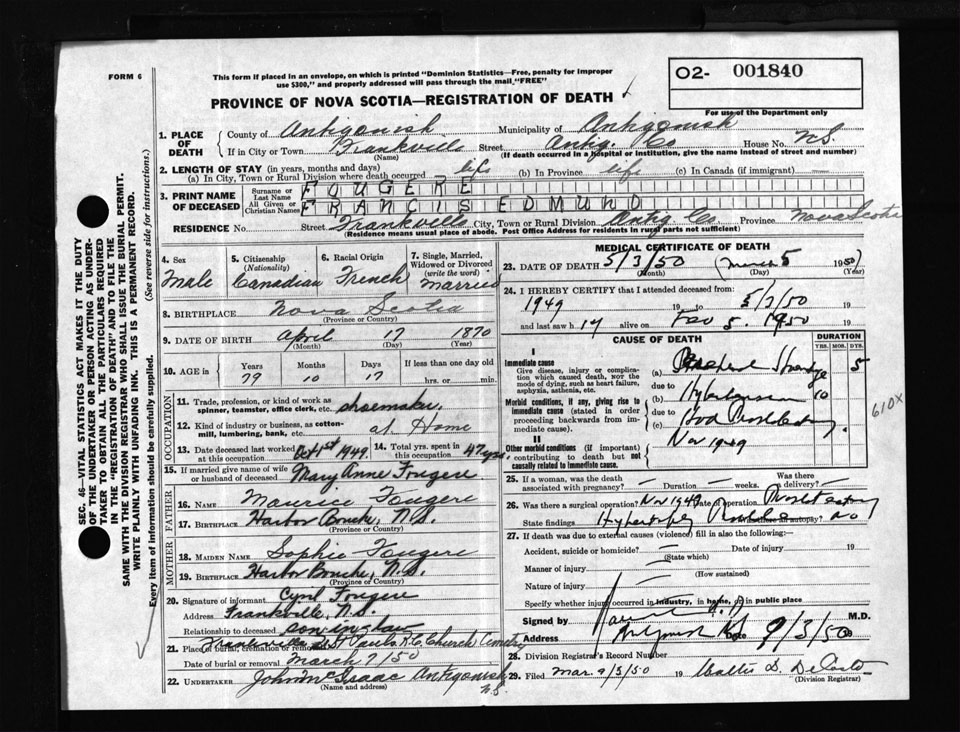 FORM 6
This form if placed in an envelope, on which is printed "Dominion Statistics—Free, penalty for improper
use $300," and properly addressed will pass through the mail "FREE"
O2- 001840
For use of the Department only
PROVINCE OF NOVA SCOTIA—REGISTRATION OF DEATH
1. PLACE OF DEATH
County of Antigonish Municipality of Antigonish
If in City or Town Frankville Street Antig. Co House No. N.S.
(Name) (If death occurred in a hospital or institution, give the name instead of street and number)
2. LENGTH OF STAY (in years, months and days)
(a) In City, Town or Rural Division where death occurred life (b) In Province life (c) In Canada (if immigrant)
3. PRINT NAME OF DECEASED
Surname or Last Name FOUGERE
All Given or Christian Names FRANCIS EDMUND
RESIDENCE No. Street Frankville City, Town or Rural Division Antig Co. Province Nova Scotia
(Residence means usual place of abode. Post Office Address for residents in rural parts not sufficient)
4. Sex Male
5. Citizenship (Nationality) Canadian
6. Racial Origin French
7. Single, Married, Widowed or Divorced (write the word) Married
8. BIRTHPLACE Nova Scotia
(Province or Country)
9. DATE OF BIRTH April 17 1870
(Month) (Day) (Year)
10. AGE in Years Months Days If less than one day old
79 10 17 hrs. or min.
OCCUPATION
11. Trade, profession, or kind of work as spinner, teamster, office clerk, etc. shoemaker.
12. Kind of industry or business, as cotton-mill, lumbering, bank, etc. at Home
13. Date deceased last worked at this occupation Oct 1st 1949.
14. Total yrs. spent in this occupation 47 yrs.
15. If married give name of wife or husband of deceased Mary Anne Fougere
FATHER
16. Name Maurice Fougere
17. Birthplace Harbor Bouche, N.S.
(Province or Country)
MOTHER
18. MAIDEN NAME Sophie Fougere
19. BIRTHPLACE Harbor Bouche, N.S.
(Province or Country)
20. Signature of informant Cyril Fougere
Address Frankville, N.S.
Relationship to deceased son
21. Place of burial, cremation or removal St Pauls R.C. Church Cemetry
Date of burial or removal March 7/50
22. UNDERTAKER John McIsaac Antigonish N.S
(Name and address)
MEDICAL CERTIFICATE OF DEATH
23. DATE OF DEATH 5/3/50 (March 5 1950)
(Month) (Day) (Year)
24. I HEREBY CERTIFY that I attended deceased from:
1949 19 to 5/3/50 19
and last saw h alive on 5. 1950
CAUSE OF DEATH
DURATION
YRS. MOS. DYS.
I
Immediate cause
Give disease, injury or complication which caused death, not the mode of dying, such as heart failure, asphyxia, asthenia, etc.
(a) 5
due to
Morbid conditions, if any, giving rise to immediate cause (stated in order proceeding backwards from immediate cause).
(b) 10
due to
(c)
II
Other morbid conditions (if important) contributing to death but not causally related to immediate cause.
Nov 1949
610X
25. If a woman, was the death associated with pregnancy? Duration weeks. Was there delivery?
26. Was there a surgical operation? Nov 1949 Date of operation
State findings Was there an autopsy? no
27. If death was due to external causes (violence) fill in also the following:
Accident, suicide or homicide? Date of injury 19
(State which)
Manner of injury
(How sustained)
Nature of injury
Specify whether injury occurred in industry, in home, or in public place
Signed by M.D.
Address Date 9/3/50
28. Division Registrar's Record Number
29. Filed Mar. 9/3/50 19 Walter D. DeCoste
(Division Registrar)
SEC. 46—VITAL STATISTICS ACT MAKES IT THE DUTY
OF THE UNDERTAKER OR PERSON ACTING AS UNDERTAKER TO OBTAIN ALL THE PARTICULARS REQUIRED
IN THE "REGISTRATION OF DEATH" AND TO FILE THE
SAME WITH THE DIVISION REGISTRAR WHO SHALL ISSUE THE BURIAL PERMIT.
WRITE PLAINLY WITH UNFADING INK. THIS IS A PERMANENT RECORD.
Every item of information should be carefully supplied. (See reverse side for instructions.)